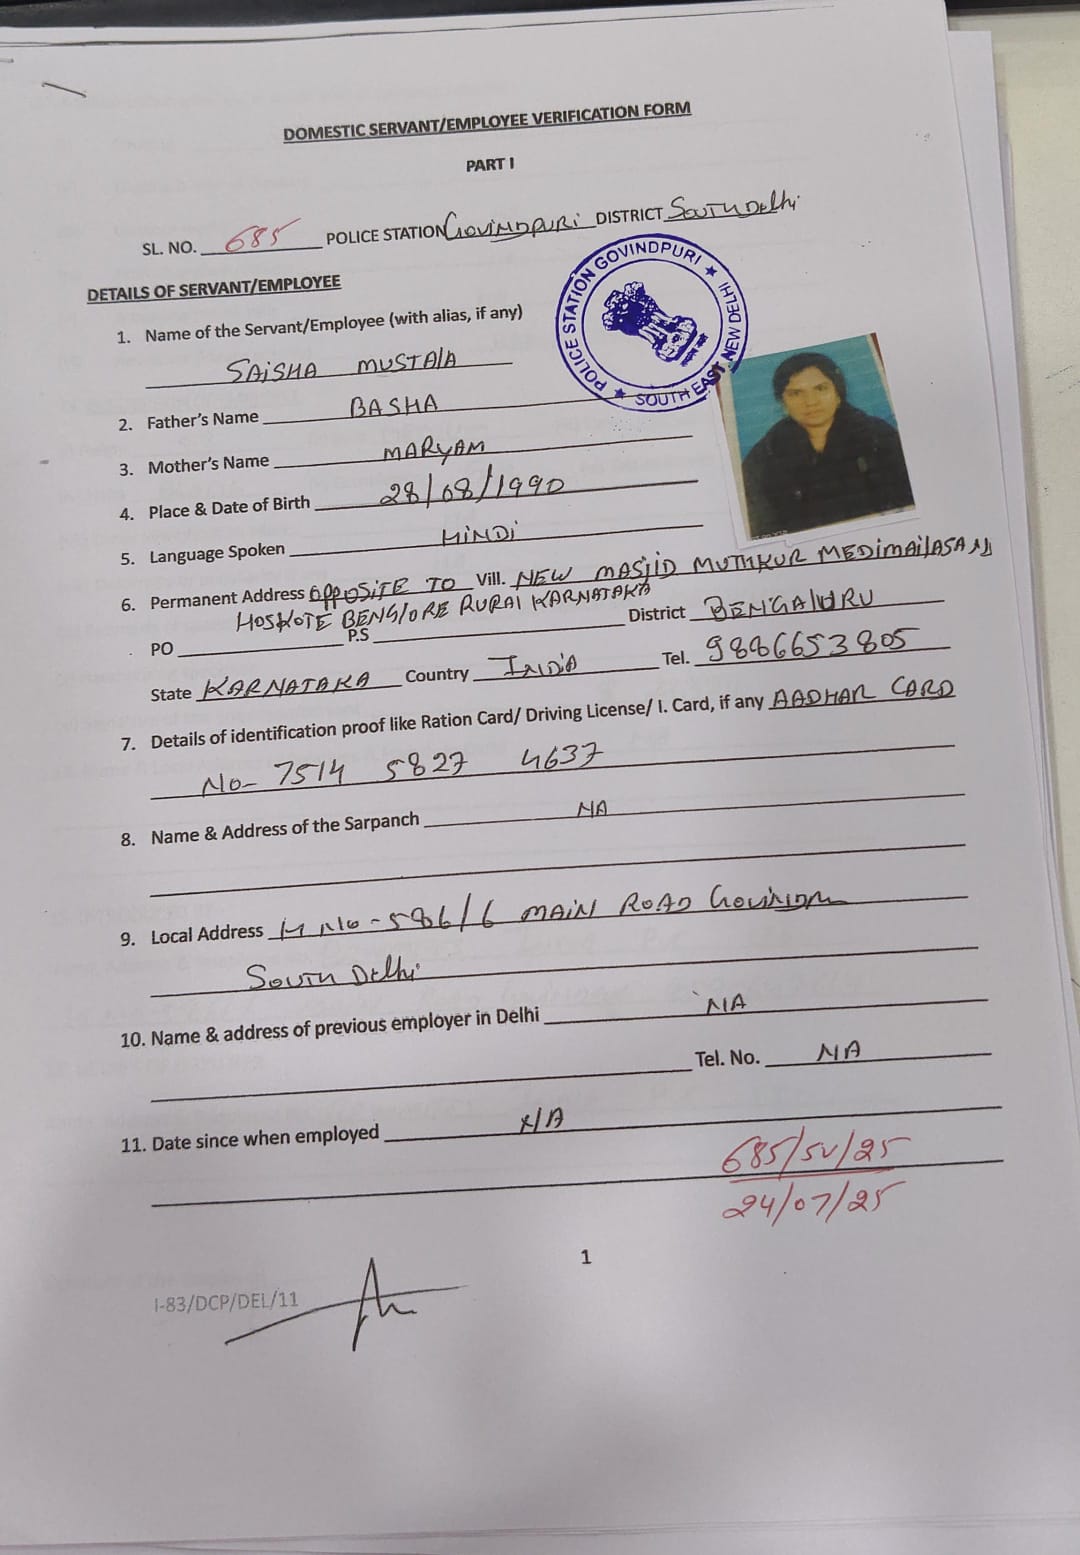 DOMESTIC SERVANT/EMPLOYEE VERIFICATION FORM
PART I
SL. NO. 685 POLICE STATION GOVINDPURI DISTRICT SOUTH DElhi
DETAILS OF SERVANT/EMPLOYEE
POLICE STATION GOVINDPURI ★ SOUTH EAST NEW DELHI ★
1. Name of the Servant/Employee (with alias, if any)
SAiSHA MUSTAlA
2. Father's Name BASHA
3. Mother's Name MARYAM
4. Place & Date of Birth 28/08/1990
5. Language Spoken HiNDi
6. Permanent Address OPPOSiTE TO Vill. NEW MASJiD MUTHKUR MEDiMAilASAN
HOSKOTE BENGlORE RURAl KARNATAKA
PO P.S District BENGAlURU
State KARNATAKA Country INDiA Tel. 9886653805
7. Details of identification proof like Ration Card/ Driving License/ I. Card, if any AADHAR CARD
No- 7514 5827 4637
8. Name & Address of the Sarpanch NA
9. Local Address H No - 586/6 MAiN ROAD
SOUTH DElhi
10. Name & address of previous employer in Delhi NA
Tel. No. NA
11. Date since when employed N/A
685/SV/25
24/07/25
1
I-83/DCP/DEL/11